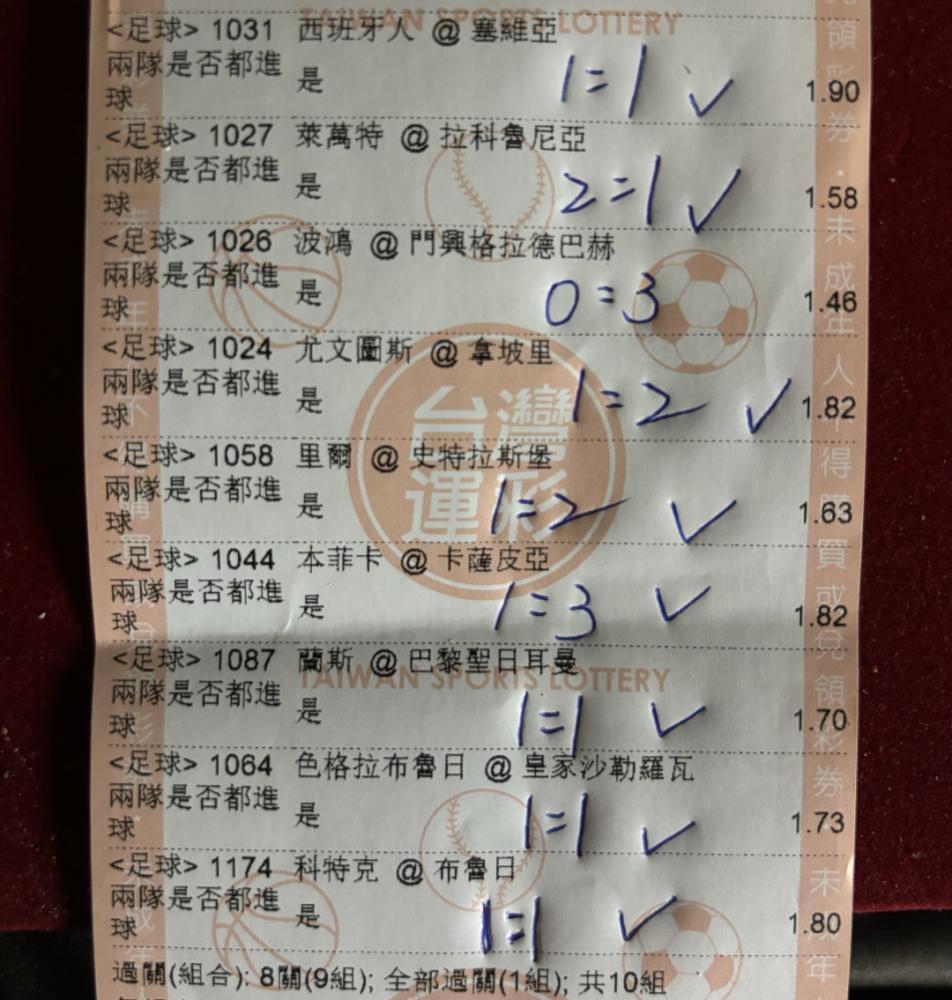 TAIWAN SPORTS LOTTERY
<足球> 1031 西班牙人 @ 塞維亞
兩隊是否都進球 是 1=1 ✓ 1.90
<足球> 1027 萊萬特 @ 拉科魯尼亞
兩隊是否都進球 是 2=1 ✓ 1.58
<足球> 1026 波鴻 @ 門興格拉德巴赫
兩隊是否都進球 是 0=3 1.46
<足球> 1024 尤文圖斯 @ 拿坡里
兩隊是否都進球 是 1=2 ✓ 1.82
台灣運彩
<足球> 1058 里爾 @ 史特拉斯堡
兩隊是否都進球 是 1=2 ✓ 1.63
<足球> 1044 本菲卡 @ 卡薩皮亞
兩隊是否都進球 是 1=3 ✓ 1.82
<足球> 1087 蘭斯 @ 巴黎聖日耳曼
TAIWAN SPORTS LOTTERY
兩隊是否都進球 是 1=1 ✓ 1.70
<足球> 1064 色格拉布魯日 @ 皇家沙勒羅瓦
兩隊是否都進球 是 1=1 ✓ 1.73
<足球> 1174 科特克 @ 布魯日
兩隊是否都進球 是 1=1 ✓ 1.80
過關(組合): 8關(9組); 全部過關(1組); 共10組